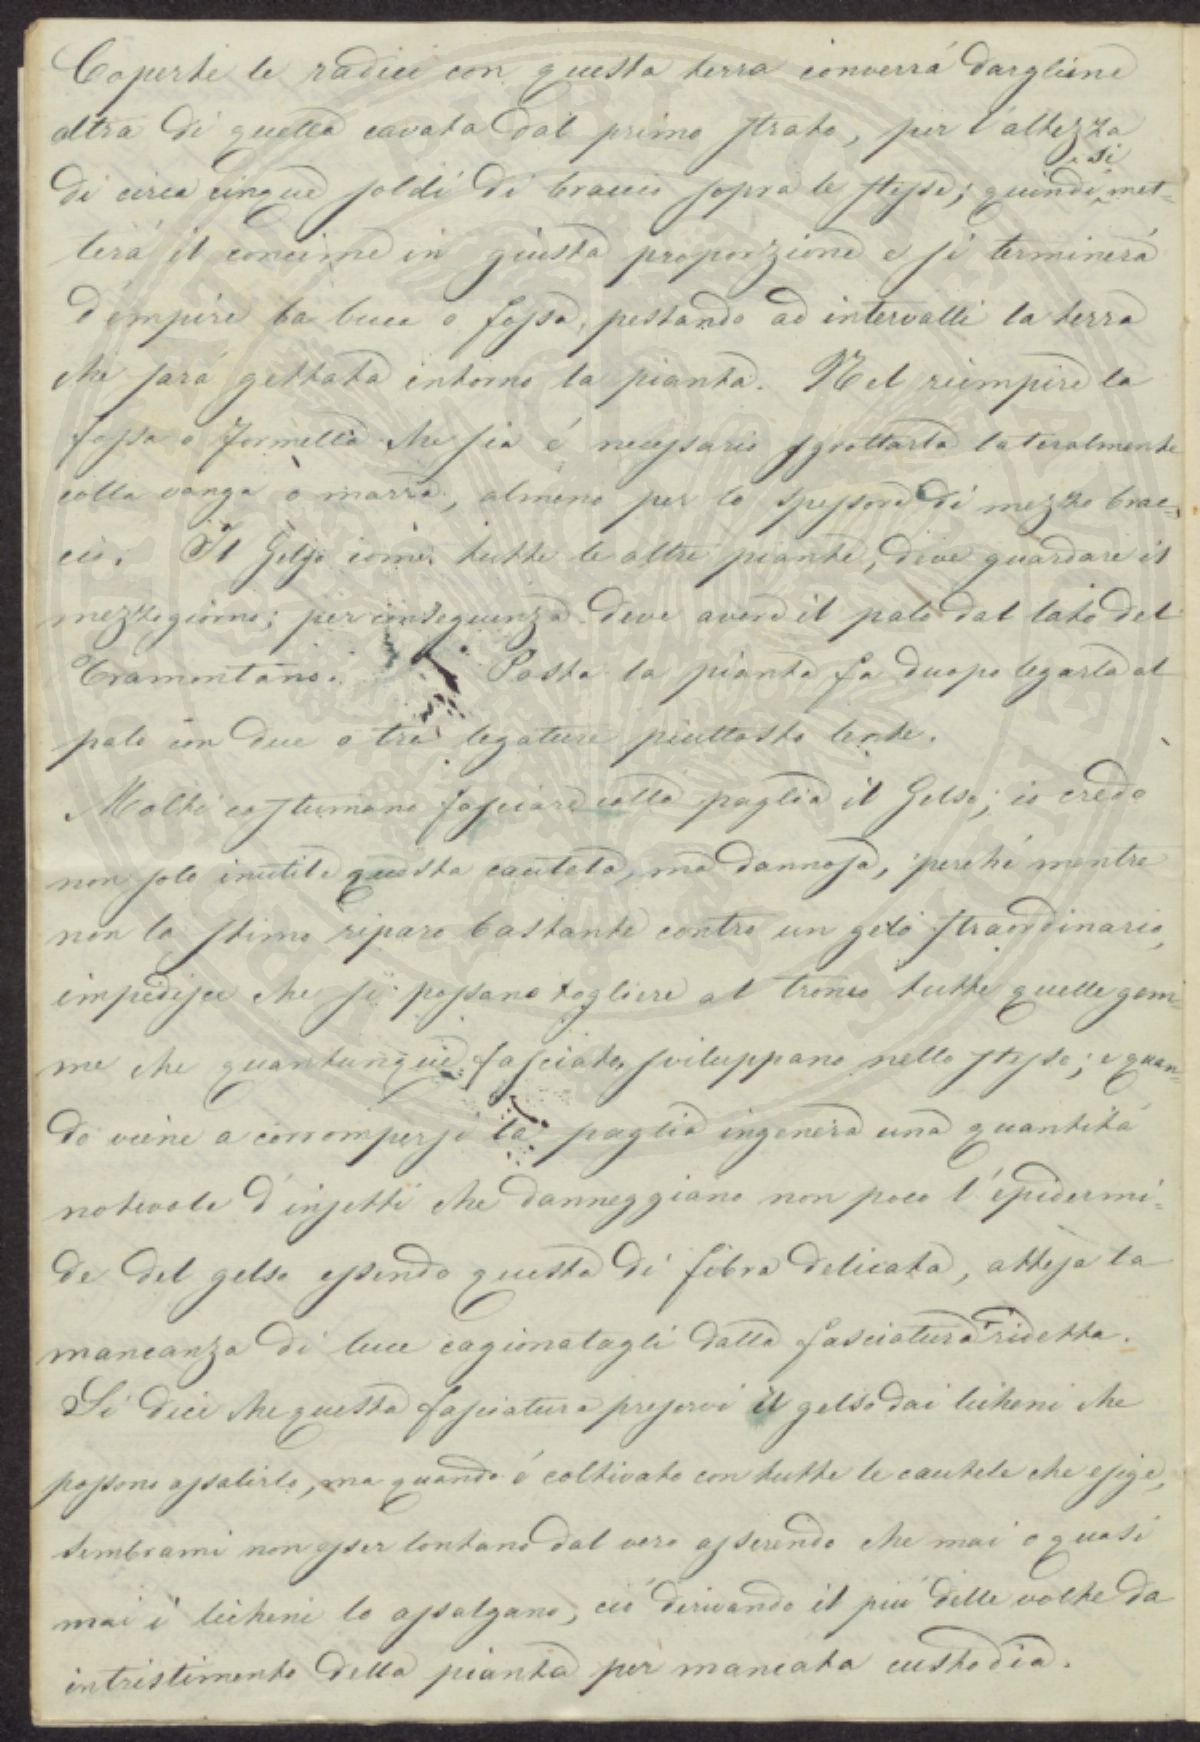 Coperte le radici con questa terra converrá dargliene
altra di quella cavata dal primo strato, per l'altezza
di circa cinque soldi di braccio sopra le stesse; quindi si met-
terá il concime in giusta proporzione e si terminerá
d'empire la buca o fossa, pestando ad intervalli la terra
che sará gettata intorno la pianta. Nel riempire la
fossa o formella che sia é necessario sgrottarla lateralmente
colla vanga o marra, almeno per lo spessore di mezzo brac-
cio. Il Gelso come tutte le altre piante, deve guardare il
mezzogiorno; per conseguenza deve avere il palo dal lato del
Tramontano. Posta la pianta fa duopo legarla al
palo con due o tre legature piuttosto lente.
Molti costumano fasciare colla paglia il Gelso; io credo
non solo inutile questa cautela, ma dannosa, perché mentre
non la stimo riparo bastante contro un gelo straordinario,
impedisce che si possano togliere al tronco tutte quelle gem-
me che quantunque fasciato, sviluppano nello stesso; e quan-
do viene a corrompersi la paglia ingenera una quantitá
notevole d'insetti che danneggiano non poco l'epidermi-
de del gelso essendo questa di fibra delicata, attesa la
mancanza di luce cagionatagli dalla fasciatura ridetta.
Si dice che questa fasciatura preservi il gelso dai licheni che
possono assalirlo, ma quando é coltivato con tutte le cautele che esige,
sembrami non esser lontano dal vero asserendo che mai o quasi
mai i licheni lo assalgano, ció derivando il piú delle volte da
intristimento della pianta per mancata custodia.